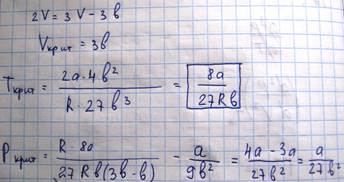 2V = 3V - 3b
Vкрит = 3b
Tкрит = 2a·4b² / R·27b³ = 8a / 27Rb
Pкрит = R·8a / 27Rb(3b-b) - a / 9b² = 4a-3a / 27b² = a / 27b²